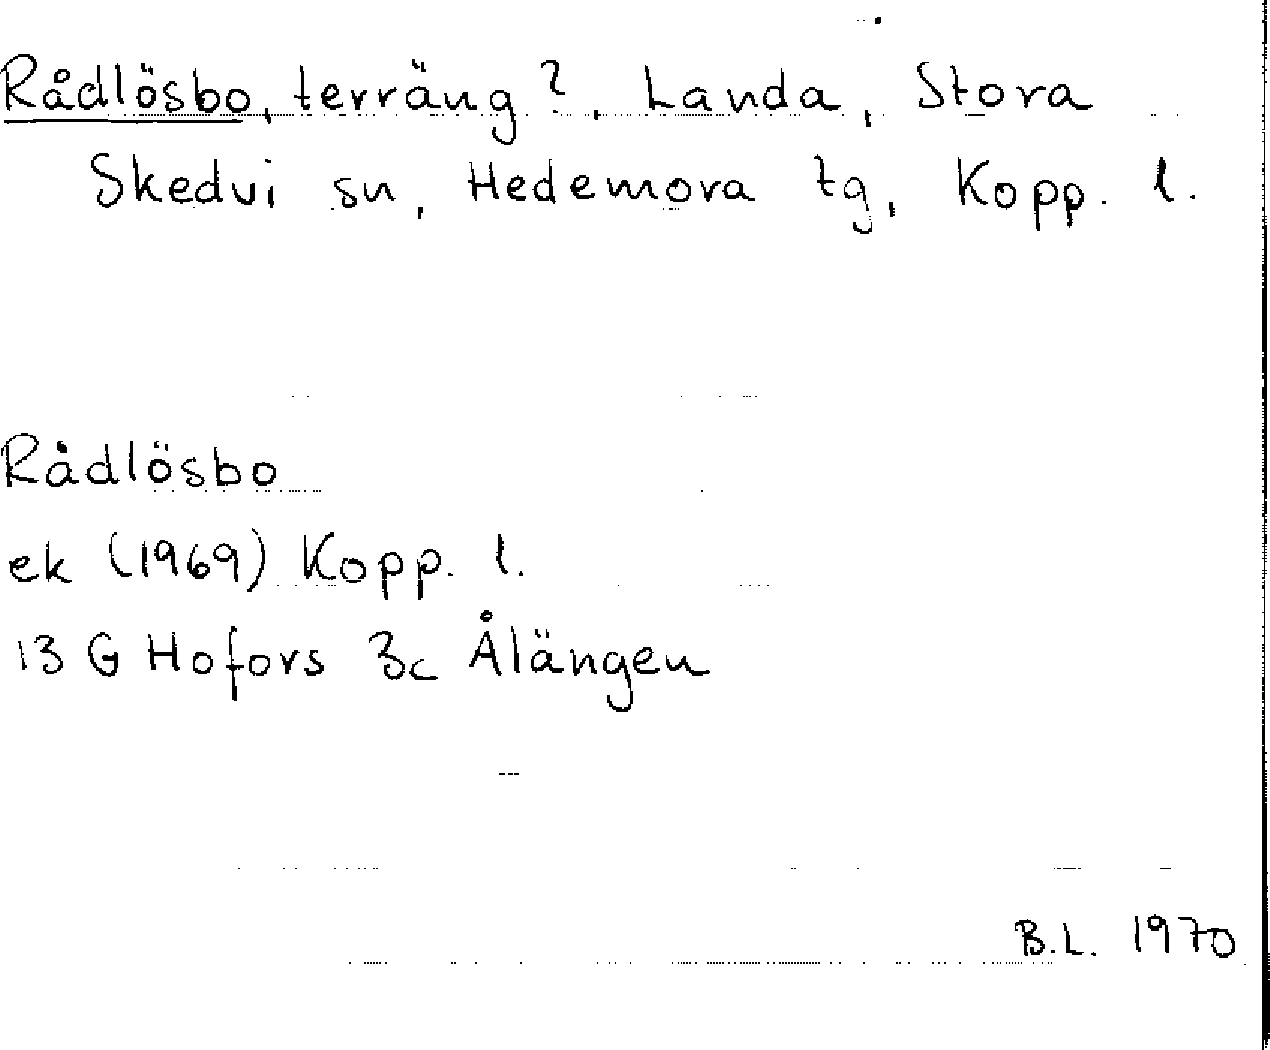 Rådlösbo, terräng?, Landa, Stora
Skedvi sn, Hedemora tg, Kopp. l.
Rådlösbo
ek (1969) Kopp. l.
13 G Hofors 3c Ålängen
B.L. 1970